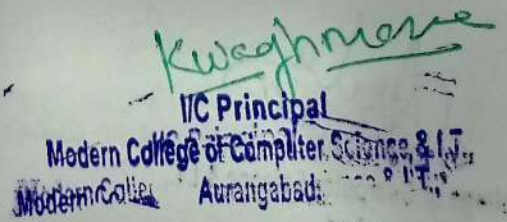 Kwaghmare
I/C Principal
Modern College of Computer Science & I.T.,
Aurangabad.